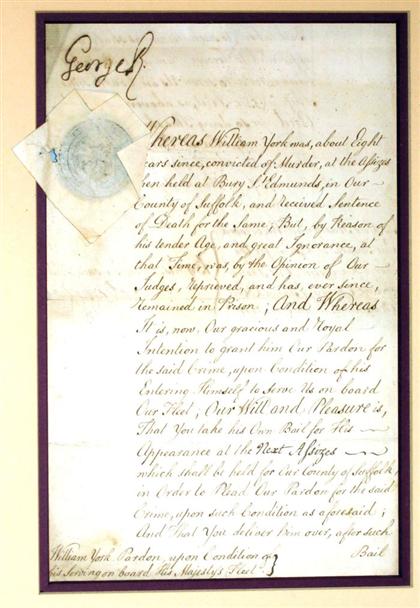 George R.
Whereas William York was, about Eight
ears since, convicted of Murder, at the Assizes
hen held at Bury St. Edmunds, in Our
County of Suffolk, and received Sentence
of Death for the Same; But, by Reason of
his tender Age, and great Ignorance, at
that Time, was, by the Opinion of Our
Judges, reprieved, and has, ever since,
remained in Prison; And Whereas
It is, now, Our gracious and Royal
Intention to grant him Our Pardon for
the said Crime, upon Condition of his
Entering Himself to Serve Us on board
Our Fleet, Our Will and Pleasure is,
That You take his Own Bail for His
Appearance at the Next Assizes
which shall be held for Our County of Suffolk,
in Order to Plead Our Pardon for the said
Crime, upon such Condition as aforesaid;
And That You deliver him over, after such
Bail
William York Pardon, upon Condition of
his Serving on board His Majesty's Fleet